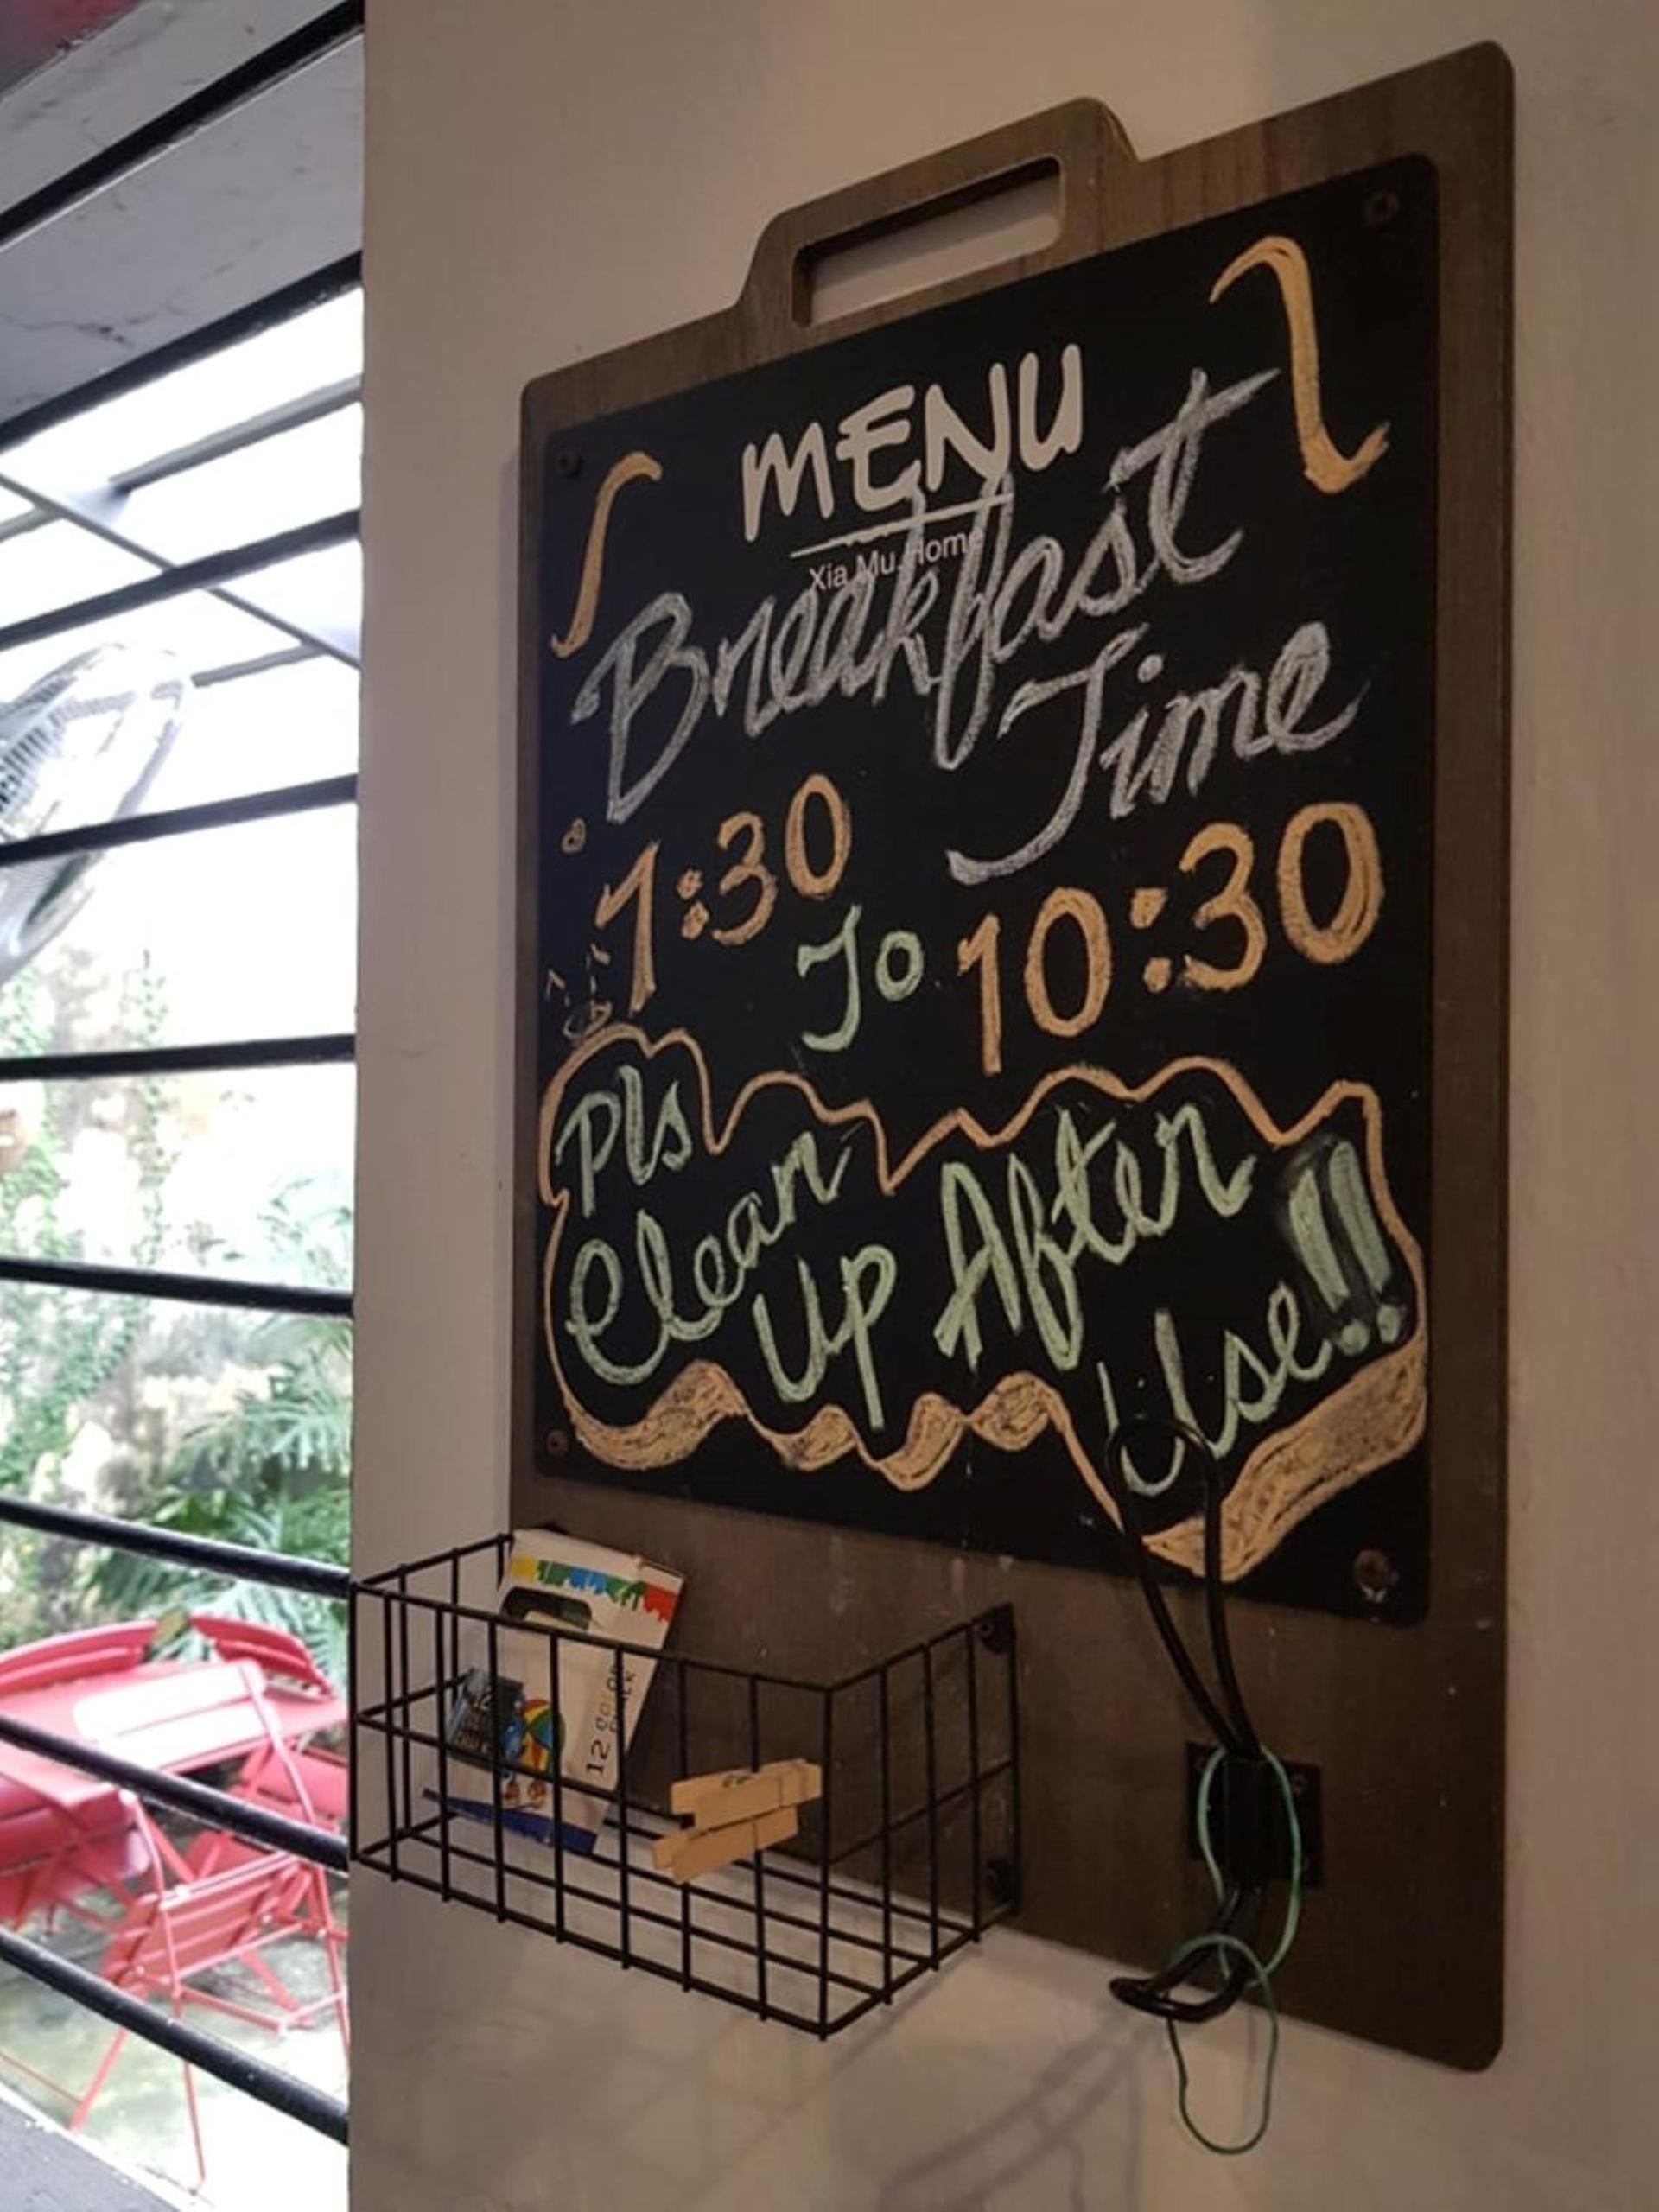 MENU
Xia Mu.Home
Breakfast
Time
7:30
To 10:30
Pls
Clean
Up After
Use!!
12 COLOR
PACK